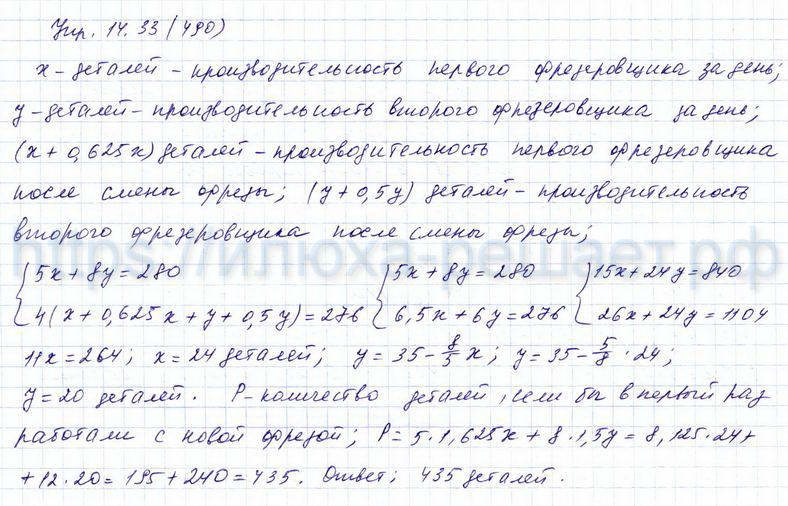 Упр. 14.33 (490)
x - деталей - производительность первого фрезеровщика за день;
y - деталей - производительность второго фрезеровщика за день;
(x + 0,625x) деталей - производительность первого фрезеровщика
после смены фрезы; (y + 0,5y) деталей - производительность
второго фрезеровщика после смены фрезы;
https://илюха-решает.рф
{5x + 8y = 280 {5x + 8y = 280 {15x + 24y = 840
4(x + 0,625x + y + 0,5y) = 276 6,5x + 6y = 276 26x + 24y = 1104
11x = 264; x = 24 деталей; y = 35 - 8/5 x; y = 35 - 5/8 · 24;
y = 20 деталей. P - количество деталей, если бы в первый раз
работали с новой фрезой; P = 5 · 1,625x + 8 · 1,5y = 8,125 · 24 +
+ 12 · 20 = 195 + 240 = 435. Ответ: 435 деталей.